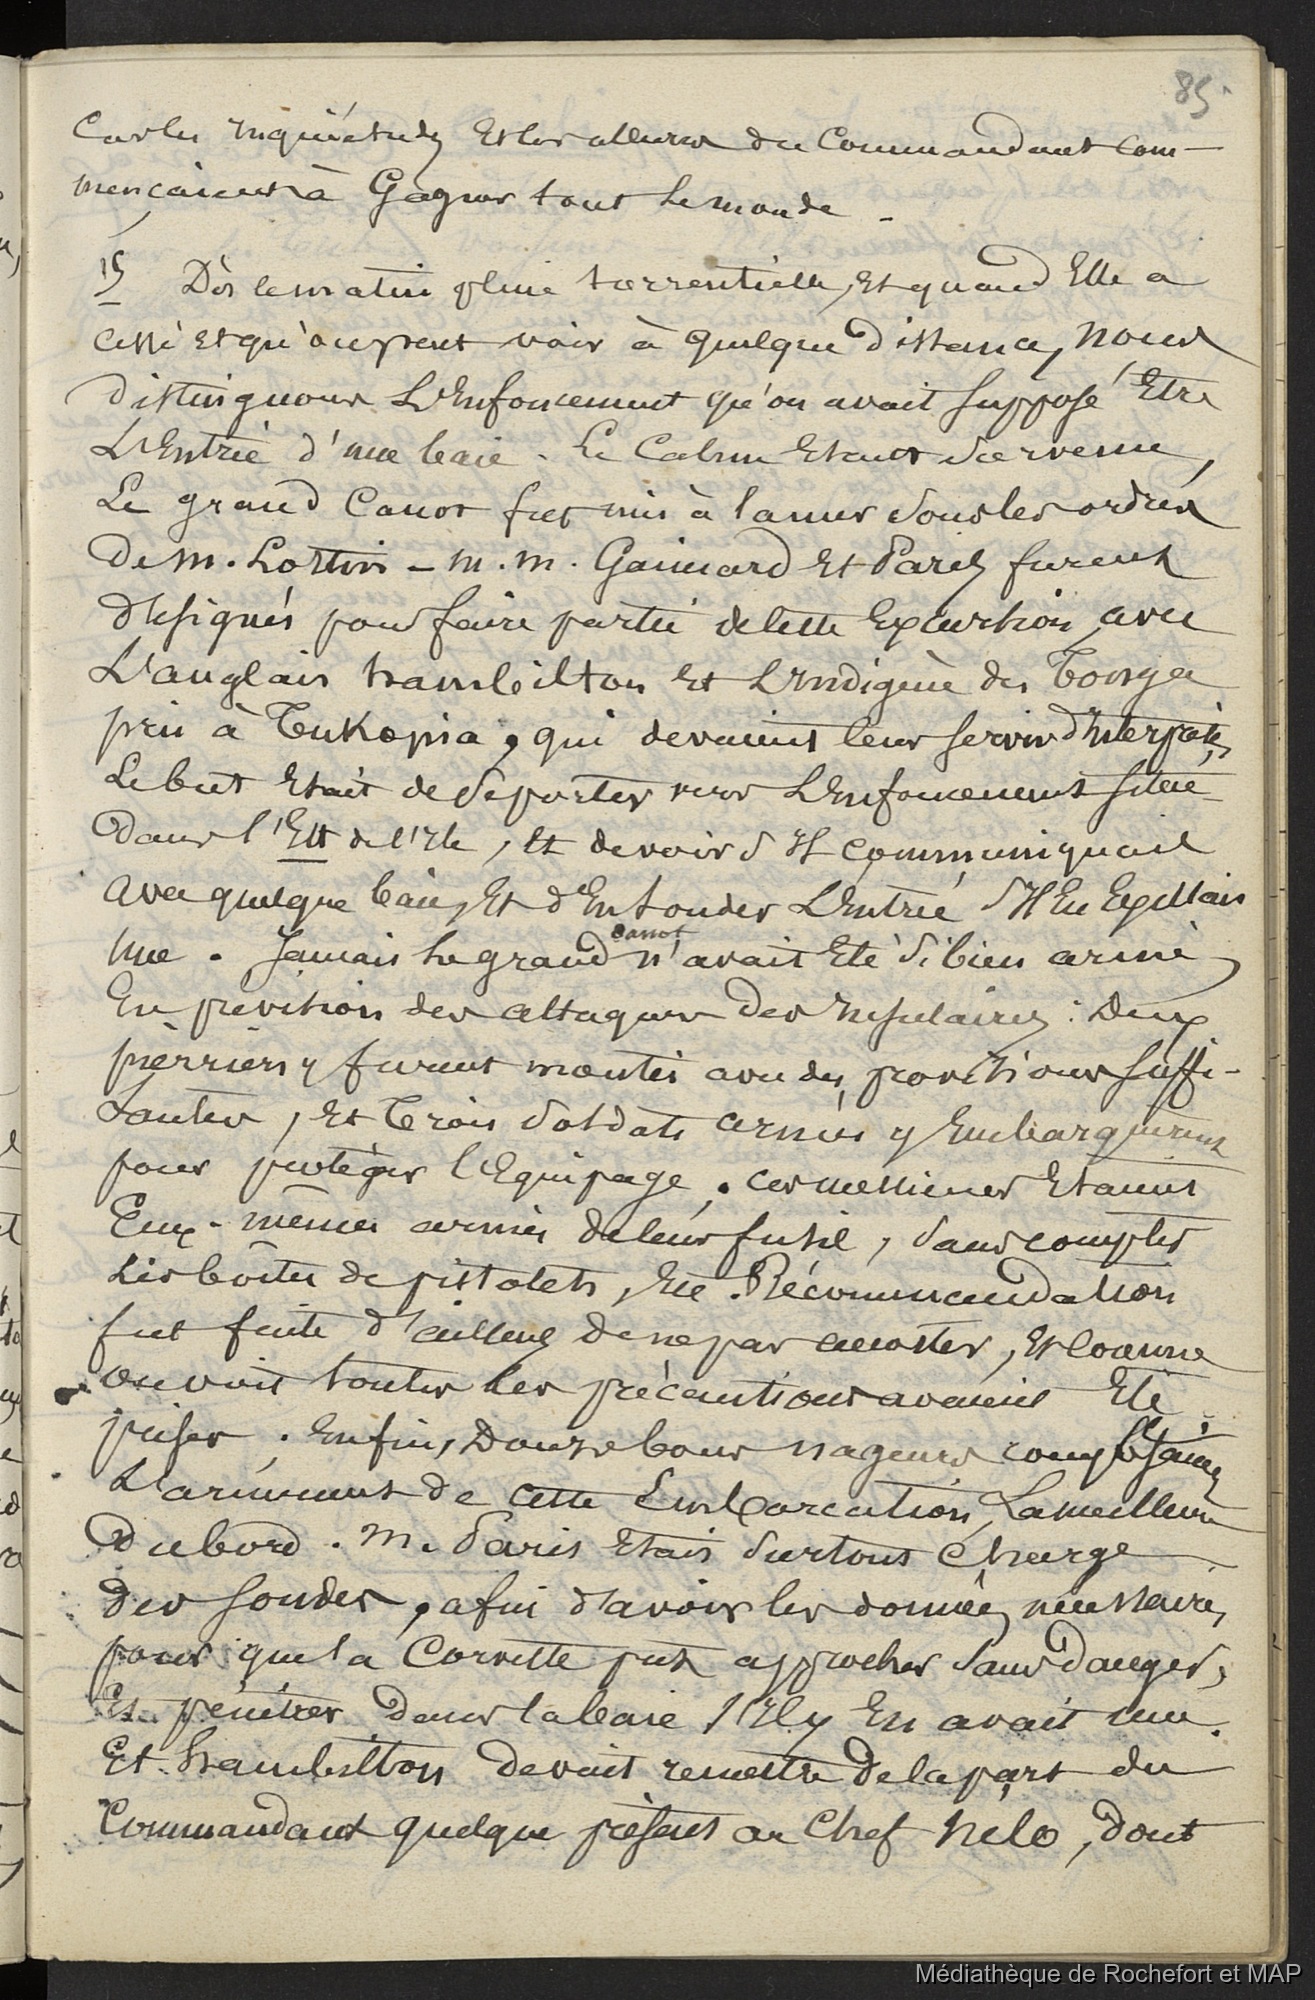 85
Car les inquiétudes et les allures du Commandant com-
mençaient à Gagner tout le monde.
15 Dès le matin pluie torrentielle, Et quand Elle a
cessé et qu'on peut voir à quelque distance, nous
distinguons L'Enfoncement qu'on avait supposé Etre
L'Entrée d'une baie. Le Calme Etant survenu,
Le grand Canot fut mis à la mer sous les ordres
De M. Lottin - M. M. Gaimard Et Paris furent
désignés pour faire partie de cette Excursion, avec
L'anglais hambilton Et L'Indigène des Tonga
pris à Tukopia, qui devaient leur servir d'Interprètes,
Le but Etait de se porter vers L'enfoncement situé
Dans l'Est de l'Ile, Et de voir S'Il communiquait
avec quelque baie, Et d'En sonder L'Entrée S'Il En Existait
une. Jamais le grand canot n'avait Eté si bien armé
En prévision des attaques des Insulaires : Deux
pierriers y furent montés avec des provisions suffi-
santes, Et Trois soldats armés y Embarquèrent
pour protéger l'Equipage. Ces messieurs Etaient
Eux-mêmes armés de leur fusil, sans compter
Les boîtes de pistolets, Etc. Récommandation
fut faite d'ailleurs de ne pas accoster, Et comme
on voit toutes les précautions avaient Eté
prises. Enfin, Douze bons nageurs composaient
L'armement de cette Embarcation, La meilleure
Du bord. M. Paris Etait surtout Chargé
des sondes, afin d'avoir les données nécessaires,
pour que la Corvette put approcher sans danger,
Et pénétrer dans la baie S'Il y En avait une.
Et hambilton devait remettre de la part du
Commandant quelque présent au Chef Nélo, dont
Médiathèque de Rochefort et MAP